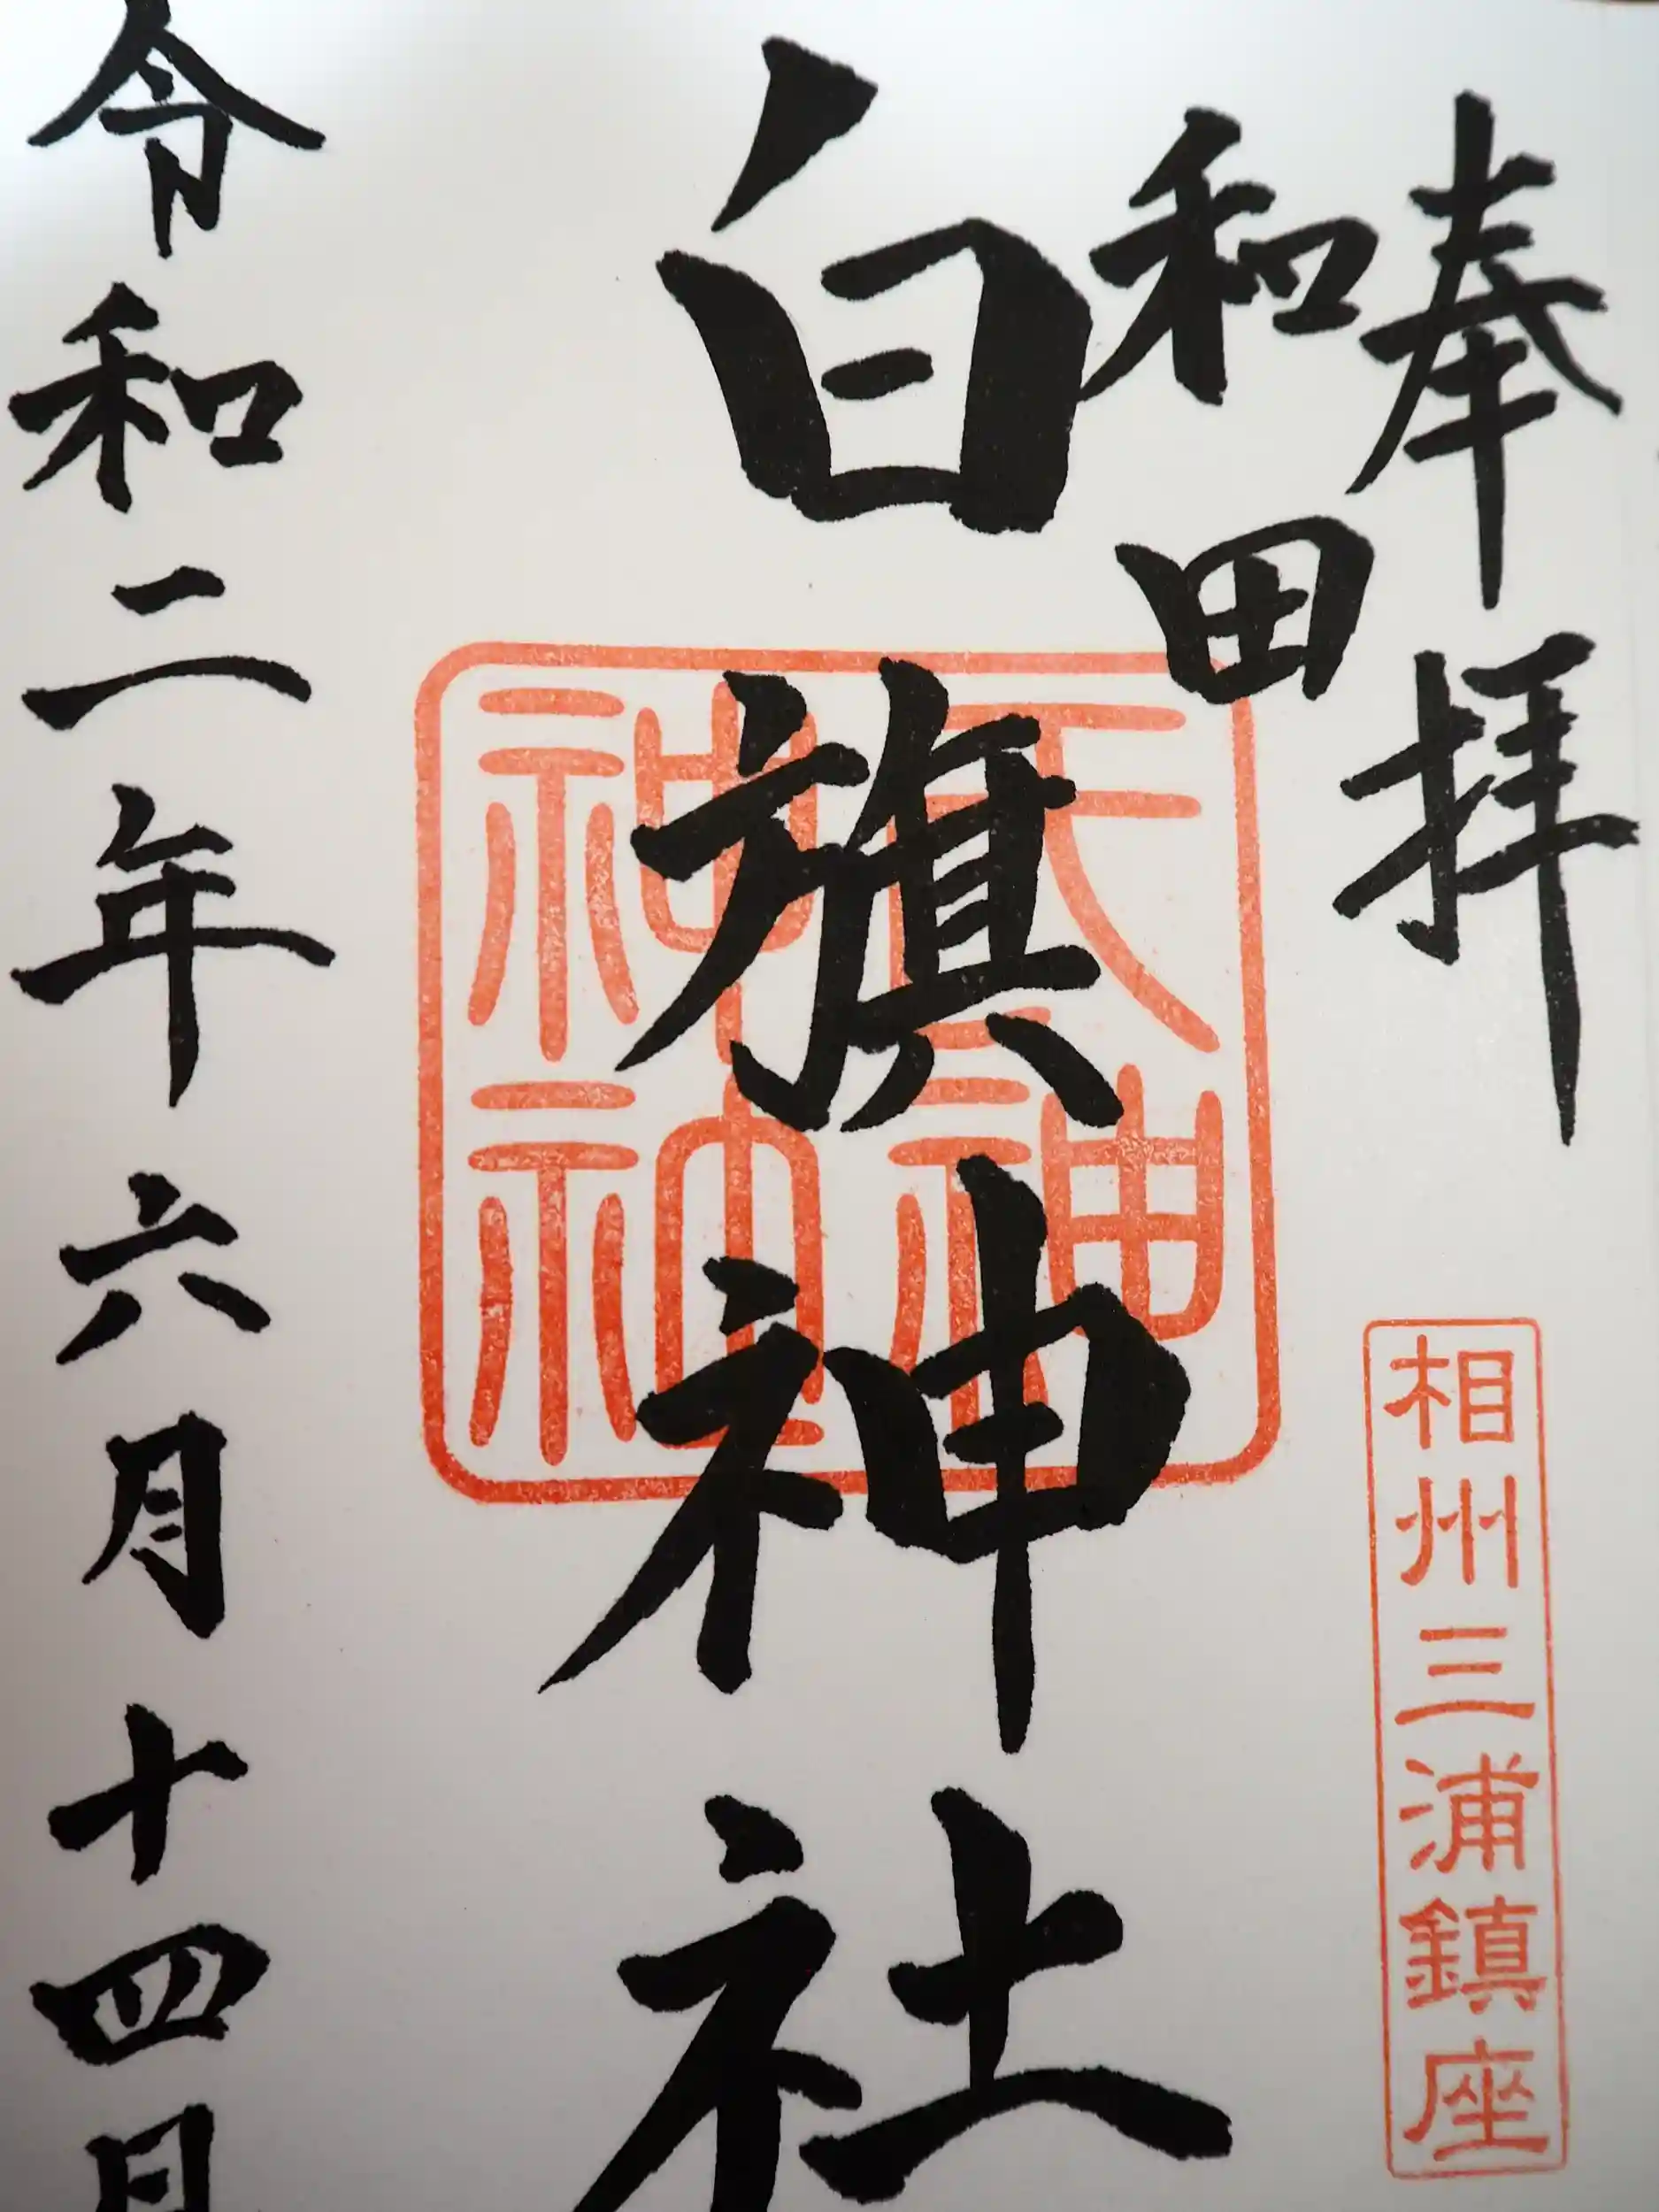 奉拝
相州三浦鎮座
和田
白旗神社
令和二年六月十四日